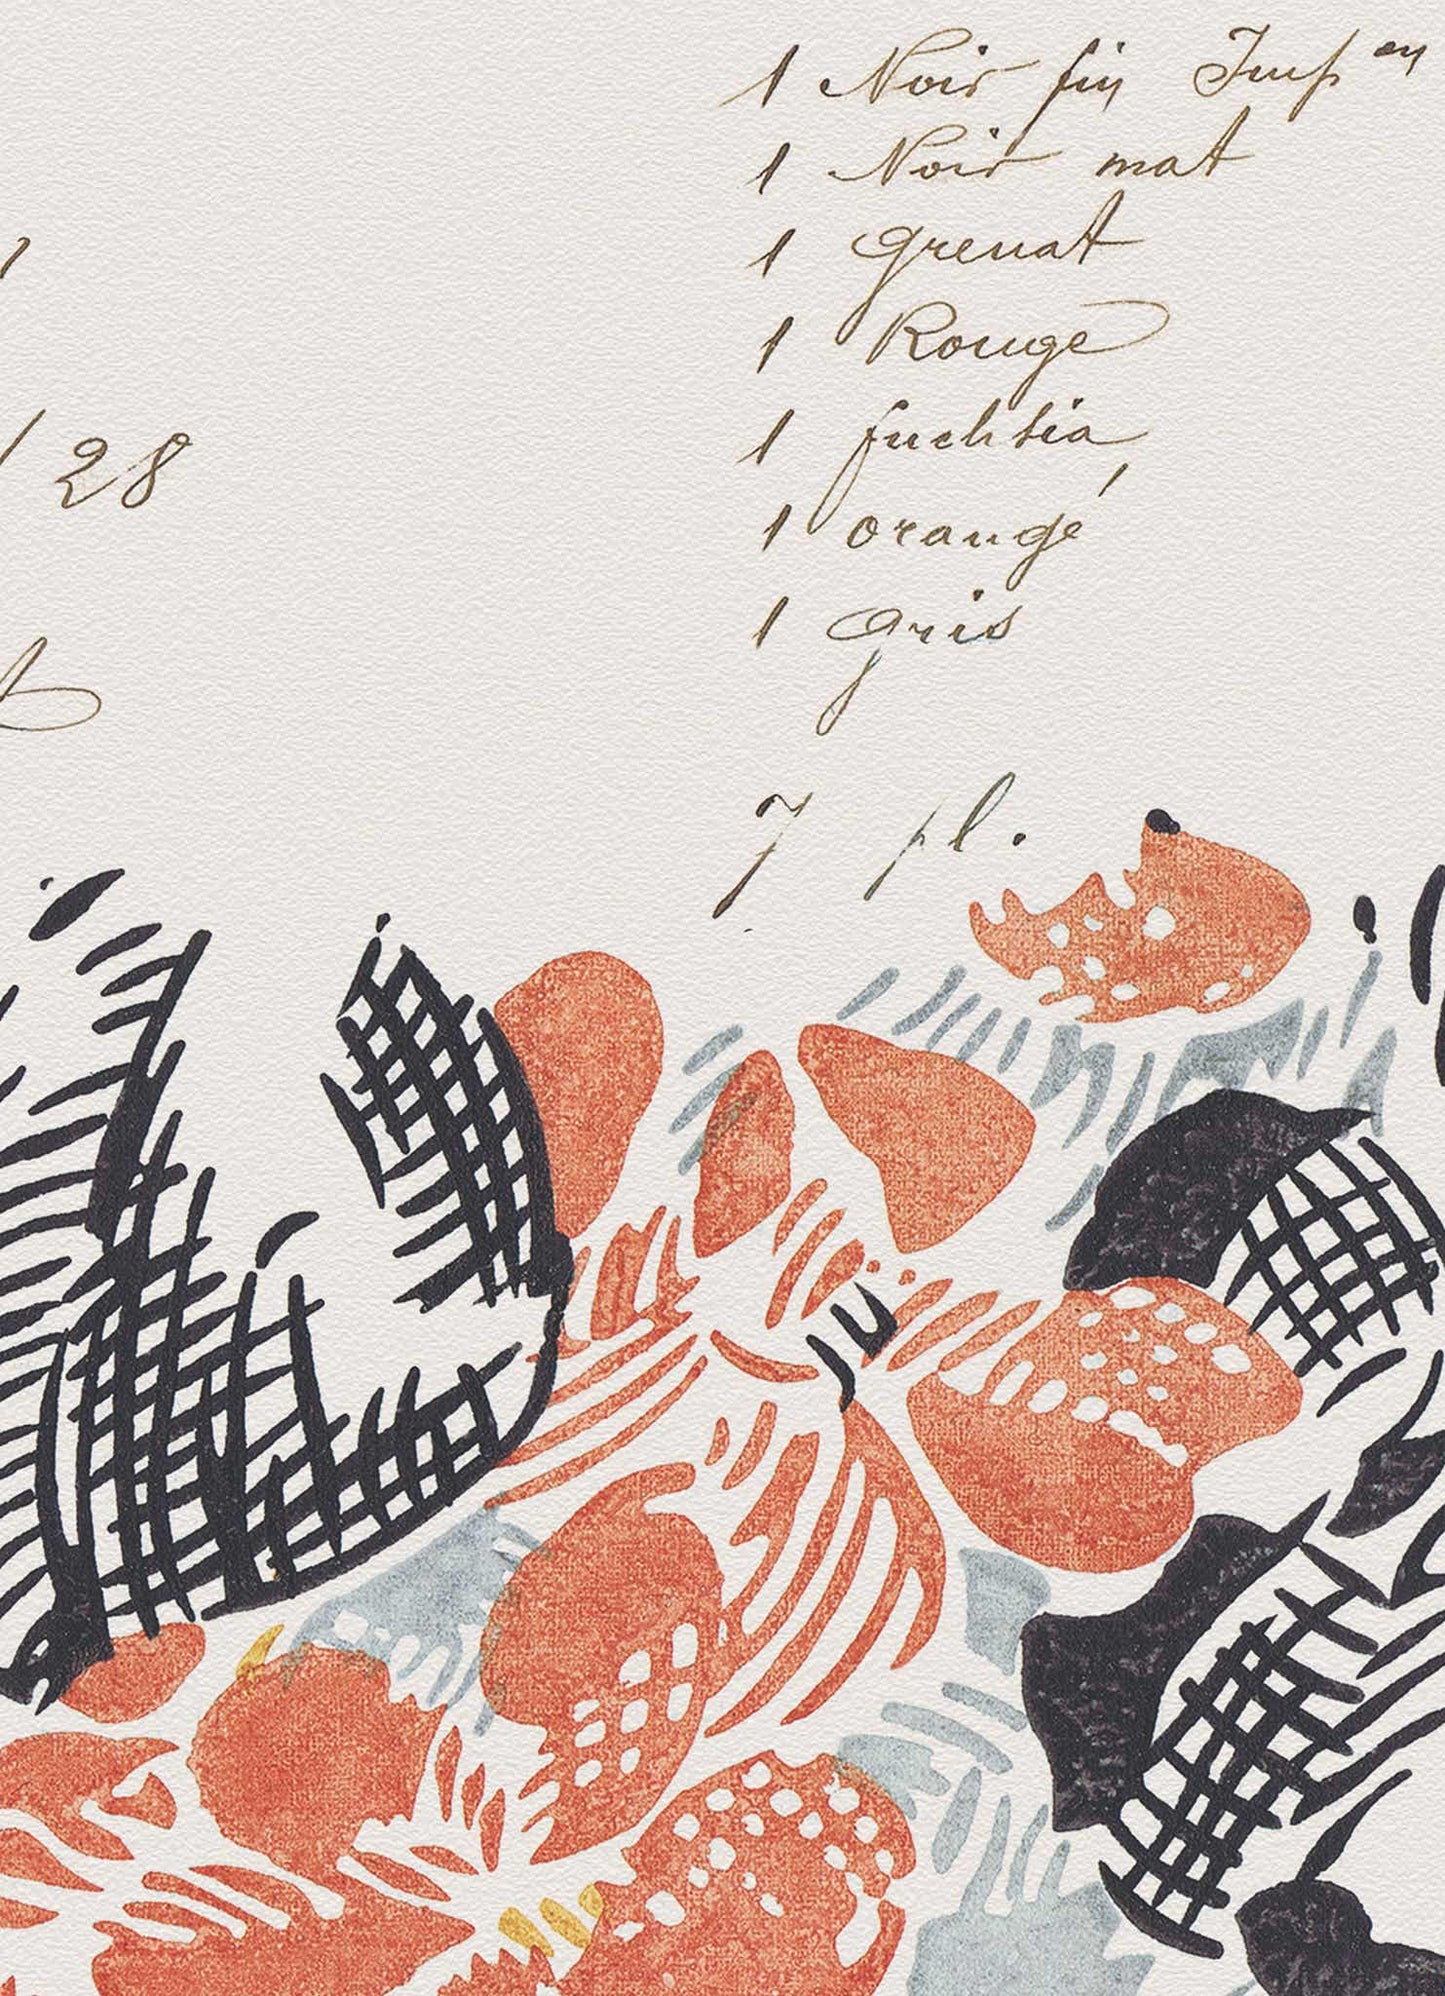 1 Noir fin Imp on
1 Noir mat
1 grenat
1 Rouge
28
1 fuchsia
1 orangé
1 gris
7 pl.